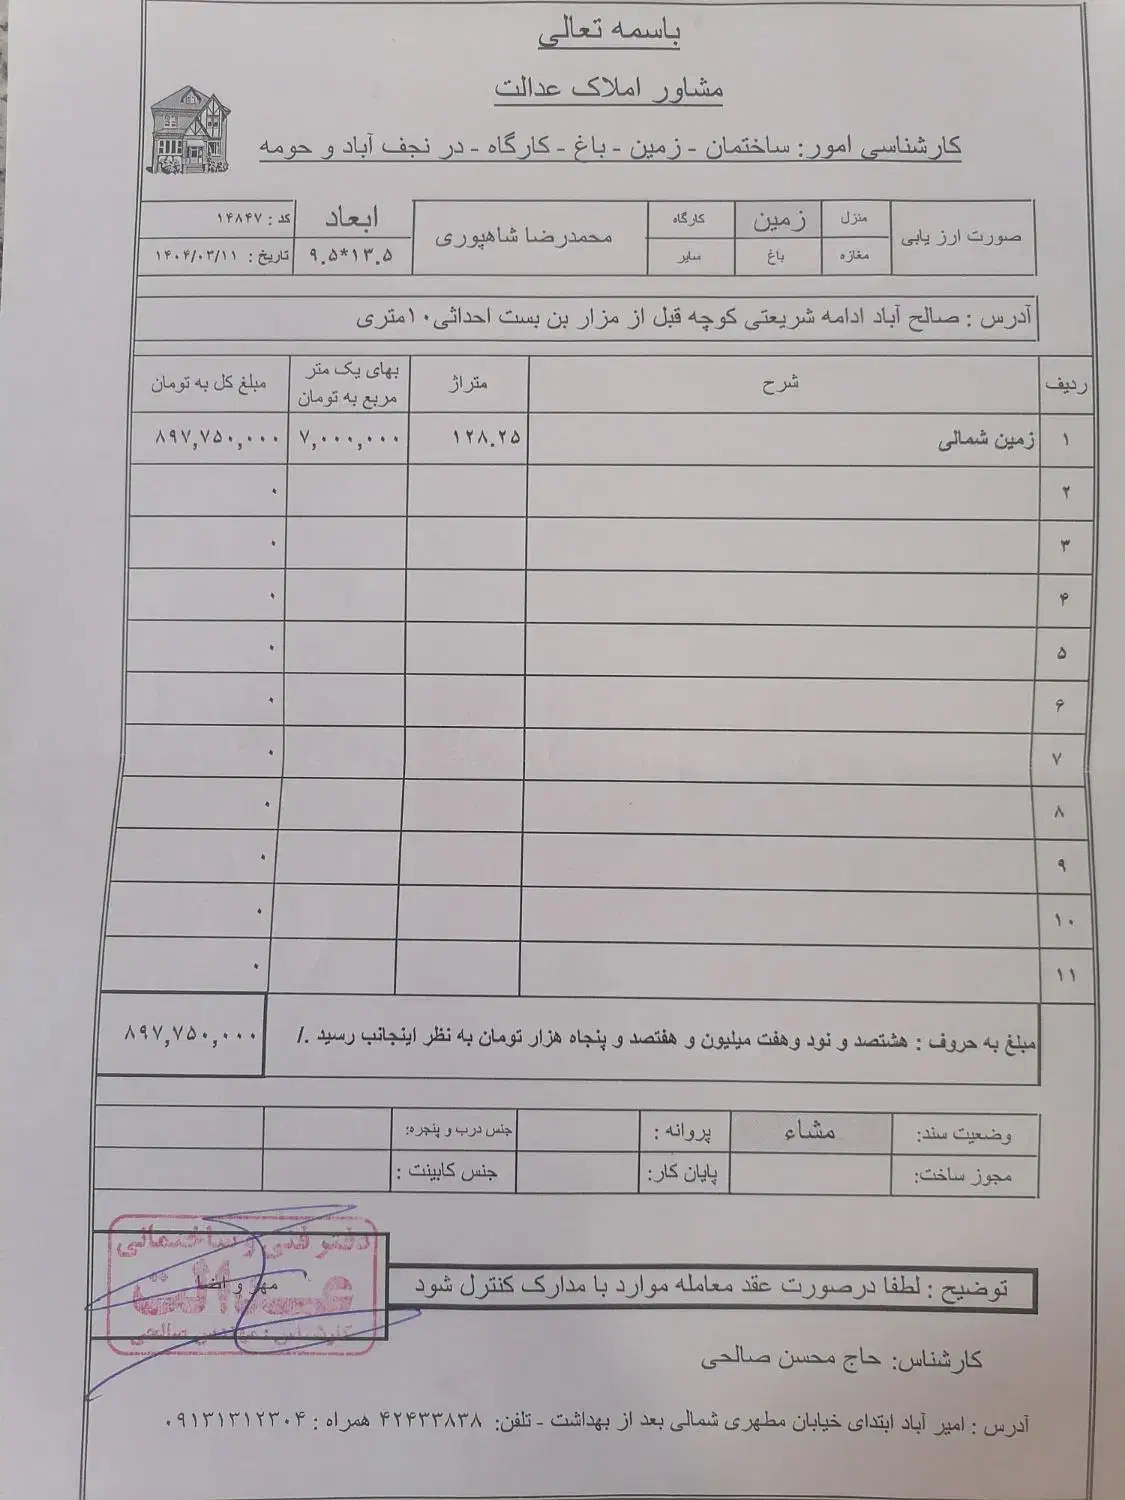 باسمه تعالی
مشاور املاک عدالت
کارشناسی امور: ساختمان - زمین - باغ - کارگاه - در نجف آباد و حومه
صورت ارز یابی
منزل
زمین
کارگاه
محمدرضا شاهپوری
ابعاد
کد : ۱۴۸۴۷
مغازه
باغ
سایر
۹.۵*۱۳.۵
تاریخ : ۱۴۰۴/۰۳/۱۱
آدرس : صالح آباد ادامه شریعتی کوچه قبل از مزار بن بست احداثی۱۰متری
ردیف شرح متراژ بهای یک متر مربع به تومان مبلغ کل به تومان
۱ زمین شمالی ۱۲۸.۲۵ ۷,۰۰۰,۰۰۰ ۸۹۷,۷۵۰,۰۰۰
۲ ۰
۳ ۰
۴ ۰
۵ ۰
۶ ۰
۷ ۰
۸ ۰
۹ ۰
۱۰ ۰
۱۱ ۰
مبلغ به حروف : هشتصد و نود وهفت میلیون و هفتصد و پنجاه هزار تومان به نظر اینجانب رسید ./ ۸۹۷,۷۵۰,۰۰۰
وضعیت سند: مشاء پروانه : جنس درب و پنجره:
مجوز ساخت: پایان کار: جنس کابینت :
دفتر فنی و ساختمانی
عدالت
مهر و امضا
کارشناس : مهندس صالحی
توضیح : لطفا درصورت عقد معامله موارد با مدارک کنترل شود
کارشناس: حاج محسن صالحی
آدرس : امیر آباد ابتدای خیابان مطهری شمالی بعد از بهداشت - تلفن: ۴۲۴۳۳۸۳۸ همراه : ۰۹۱۳۱۳۱۲۳۰۴